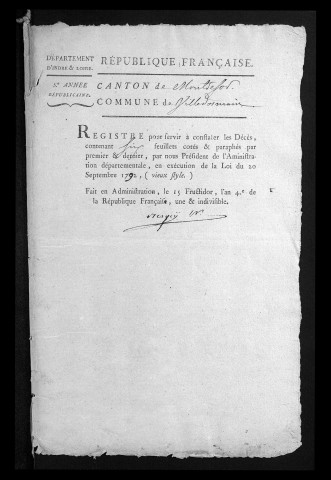 DÉPARTEMENT
D'INDRE & LOIRE.
RÉPUBLIQUE FRANÇAISE.
5.e ANNÉE
RÉPUBLICAINE.
CANTON de Montresor
COMMUNE de Villedomain
REGISTRE pour servir à constater les Décès,
contenant six feuillets cotés & paraphés par
premier & dernier, par nous Président de l'Aministra-
tion départementale, en exécution de la Loi du 20
Septembre 1792, ( vieux style. )
Fait en Administration, le 15 Fructidor, l'an 4.e de
la République Française, une & indivisible.